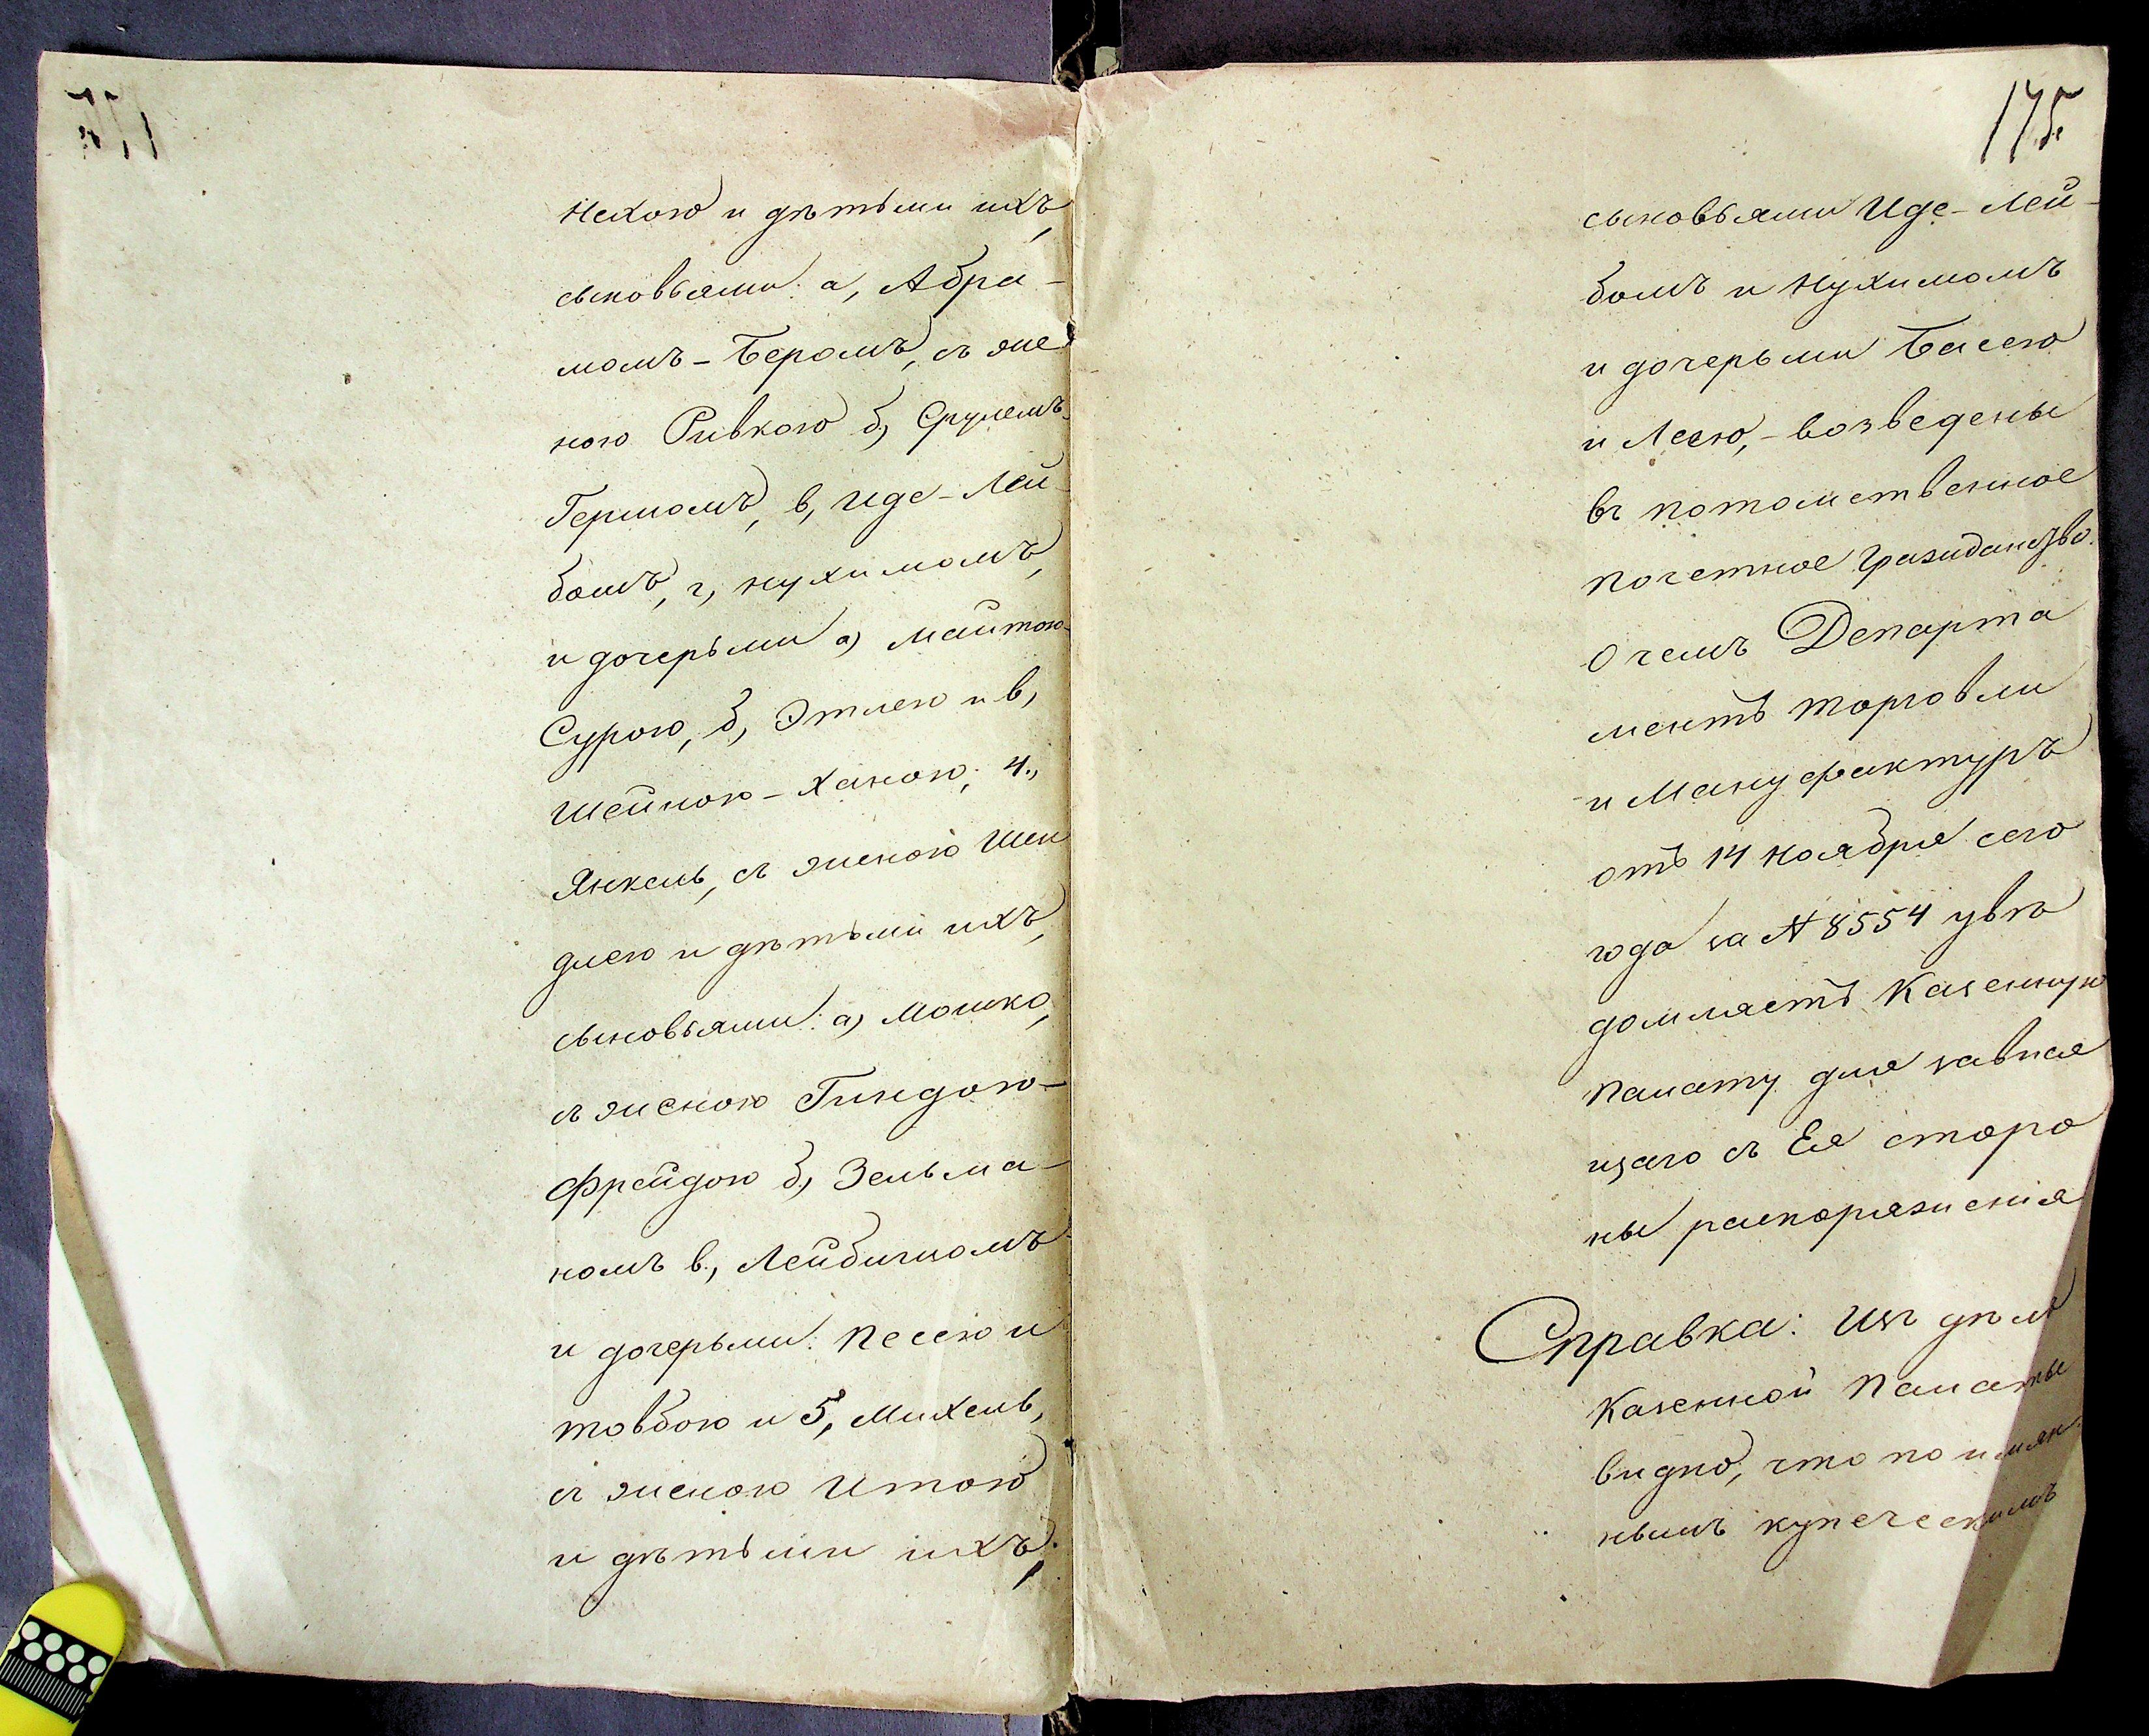 Нехою и дѣтьми ихъ,
сыновьями: а, Абра-
момъ-Беромъ, съ же
ною Ривкою б, Срулемъ-
Гершомъ, в, Иде-Лей-
бомъ, г, Нухимомъ,
и дочерьми а, Маитою-
Сурою, б, Этлею и в,
Шейною-Ханою; 4.,
Янкель, съ женою Шен
длею и дѣтьми ихъ,
сыновьями: а, Мошко,
съ женою Гиндою-
Фрейдою б, Зельма-
номъ в., Лейбишомъ
и дочерьми: Песею и
Товбою и 5, Михель,
съ женою Итою
и дѣтьми ихъ;
175.
сыновьями Иде-Лей-
бомъ и Нухимомъ
и дочерьми Басею
и Леею, - возведены
въ потомственное
почетное гражданство.
О чемъ Департа
ментъ торговли
и Мануфактуръ
отъ 14 Ноября сего
года за № 8554 увѣ
домляетъ Казенную
Палату для завися
щаго съ Ея сторо
ны распоряженія
Справка: Изъ дѣлъ
Казенной Палаты
видно, что по имян
нымъ купеческимъ